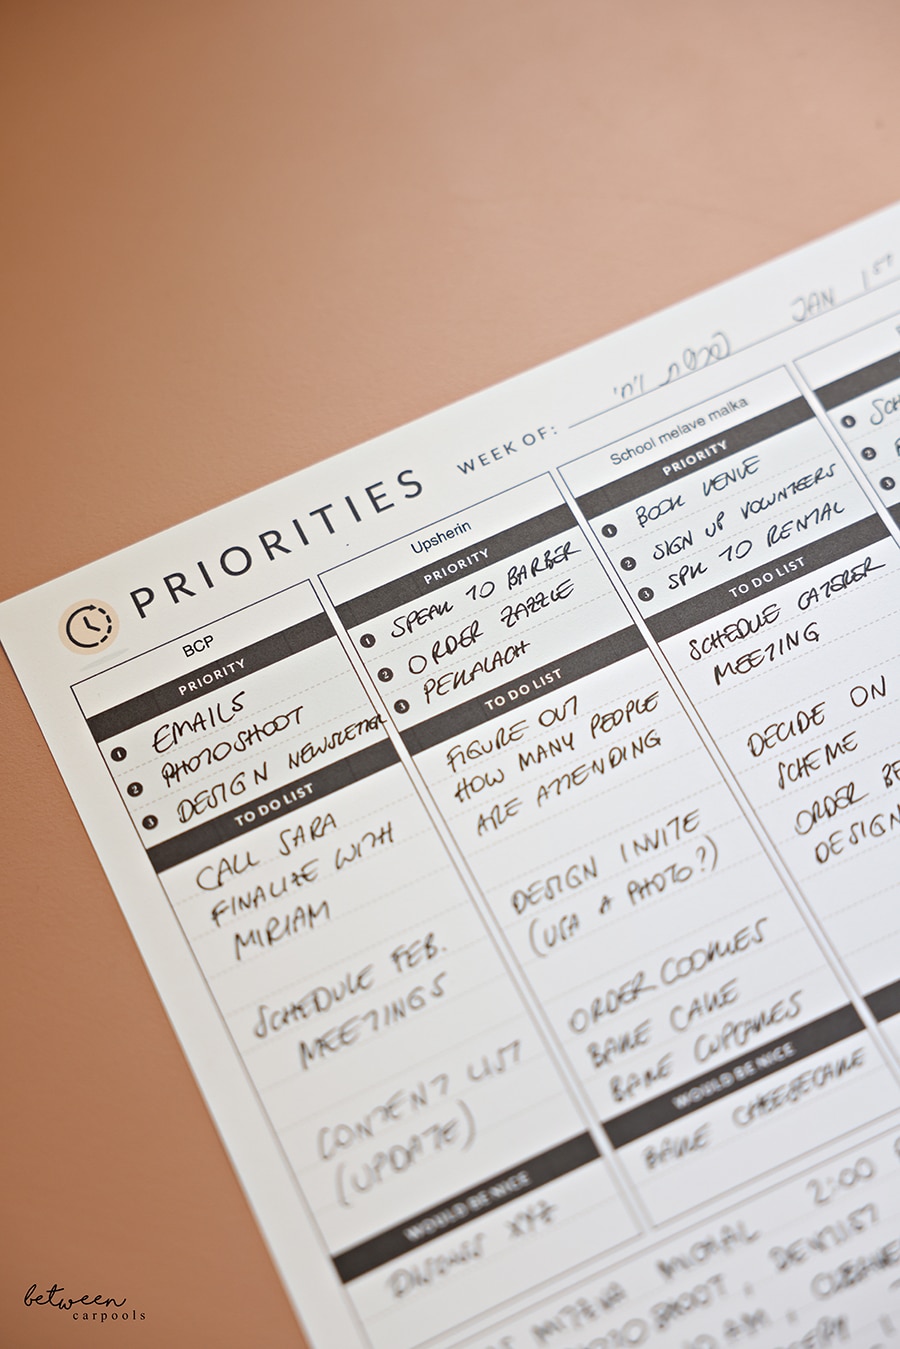 PRIORITIES
WEEK OF:
פרשת ויחי
JAN 1ST
BCP
PRIORITY
1 EMAILS
2 PHOTOSHOOT
3 DESIGN NEWSLETTER
TO DO LIST
CALL SARA
FINALIZE WITH
MIRIAM
SCHEDULE FEB.
MEETINGS
CONTENT LIST
(UPDATE)
WOULD BE NICE
DISCUSS XYZ
Upsherin
PRIORITY
1 SPEAK TO BARBER
2 ORDER ZAZZLE
3 PEKALACH
TO DO LIST
FIGURE OUT
HOW MANY PEOPLE
ARE ATTENDING
DESIGN INVITE
(USE A PHOTO?)
ORDER COOKIES
BAKE CAKE
BAKE CUPCAKES
WOULD BE NICE
BAKE CHEESECAKE
School melave malka
PRIORITY
1 BOOK VENUE
2 SIGN UP VOLUNTEERS
3 SPK TO RENTAL
TO DO LIST
SCHEDULE CATERER
MEETING
DECIDE ON
SCHEME
ORDER
DESIGN
1
2
3
2:00
PHOTOSHOOT, DENTIST
AM,
between
carpools